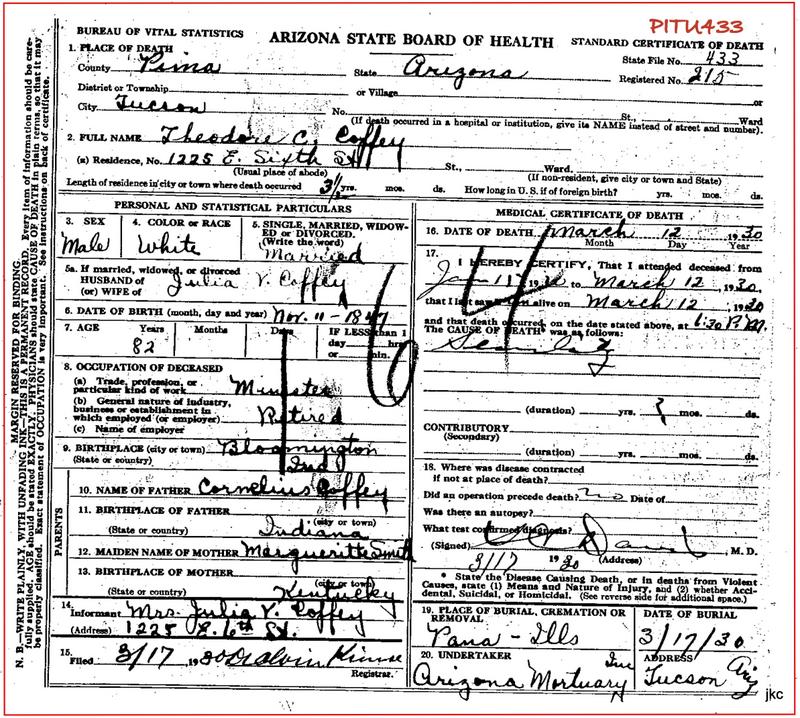 PITU433
BUREAU OF VITAL STATISTICS
ARIZONA STATE BOARD OF HEALTH
STANDARD CERTIFICATE OF DEATH
1. PLACE OF DEATH
State File No. 433
County Pima State Arizona Registered No. 215
District or Township or Village or
City Tucson No. St., Ward
(If death occurred in a hospital or institution, give its NAME instead of street and number).
2. FULL NAME Theodore C. Coffey
(a) Residence, No. 1225 E. Sixth St St., Ward.
(Usual place of abode) (If non-resident, give city or town and State)
Length of residence in city or town where death occurred 3½ yrs. mos. ds. How long in U. S. if of foreign birth? yrs. mos. ds.
PERSONAL AND STATISTICAL PARTICULARS
3. SEX Male
4. COLOR or RACE White
5. SINGLE, MARRIED, WIDOWED or DIVORCED.
(Write the word)
Married
5a. If married, widowed, or divorced
HUSBAND of
(or) WIFE of Julia V. Coffey
6. DATE OF BIRTH (month, day and year) Nov. 11 - 1847
7. AGE Years Months Days IF LESS than 1
day hrs
or min.
82
8. OCCUPATION OF DECEASED
(a) Trade, profession, or
particular kind of work Minister
(b) General nature of industry,
business or establishment in
which employed (or employer) Retired
(c) Name of employer
9. BIRTHPLACE (city or town) Bloomington
(State or country) Ind
PARENTS
10. NAME OF FATHER Cornelius Coffey
11. BIRTHPLACE OF FATHER
(city or town)
(State or country) Indiana
12. MAIDEN NAME OF MOTHER Margueritte Smith
13. BIRTHPLACE OF MOTHER
(city or town)
(State or country) Kentucky
14. Informant Mrs. Julia V. Coffey
(Address) 1225 E. 6th St.
15. Filed 3/17 1930
Registrar.
MEDICAL CERTIFICATE OF DEATH
16. DATE OF DEATH March 12 1930
Month Day Year
17. I HEREBY CERTIFY, That I attended deceased from
Jan 11 19 to March 12, 1930,
that I last saw alive on March 12, 1930
and that death occurred, on the date stated above, at 6:30 P.M.
The CAUSE OF DEATH* was as follows:
Senility
(duration) yrs. mos. ds.
CONTRIBUTORY
(Secondary)
(duration) yrs. mos. ds.
18. Where was disease contracted
if not at place of death?
Did an operation precede death? no Date of
Was there an autopsy?
What test confirmed diagnosis?
(Signed) , M. D.
3/17 1930 (Address)
* State the Disease Causing Death, or in deaths from Violent
Causes, state (1) Means and Nature of Injury, and (2) whether Accidental,
Suicidal, or Homicidal. (See reverse side for additional space.)
19. PLACE OF BURIAL, CREMATION OR
REMOVAL
Pana - Ills
DATE OF BURIAL
3/17/30
20. UNDERTAKER
Arizona Mortuary Inc
ADDRESS
Tucson Ariz
MARGIN RESERVED FOR BINDING.
N. B.—WRITE PLAINLY, WITH UNFADING INK—THIS IS A PERMANENT RECORD. Every item of information should be carefully supplied. AGE should be stated EXACTLY. PHYSICIANS should state CAUSE OF DEATH in plain terms, so that it may be properly classified. Exact statement of OCCUPATION is very important. See instructions on back of certificate.
jkc